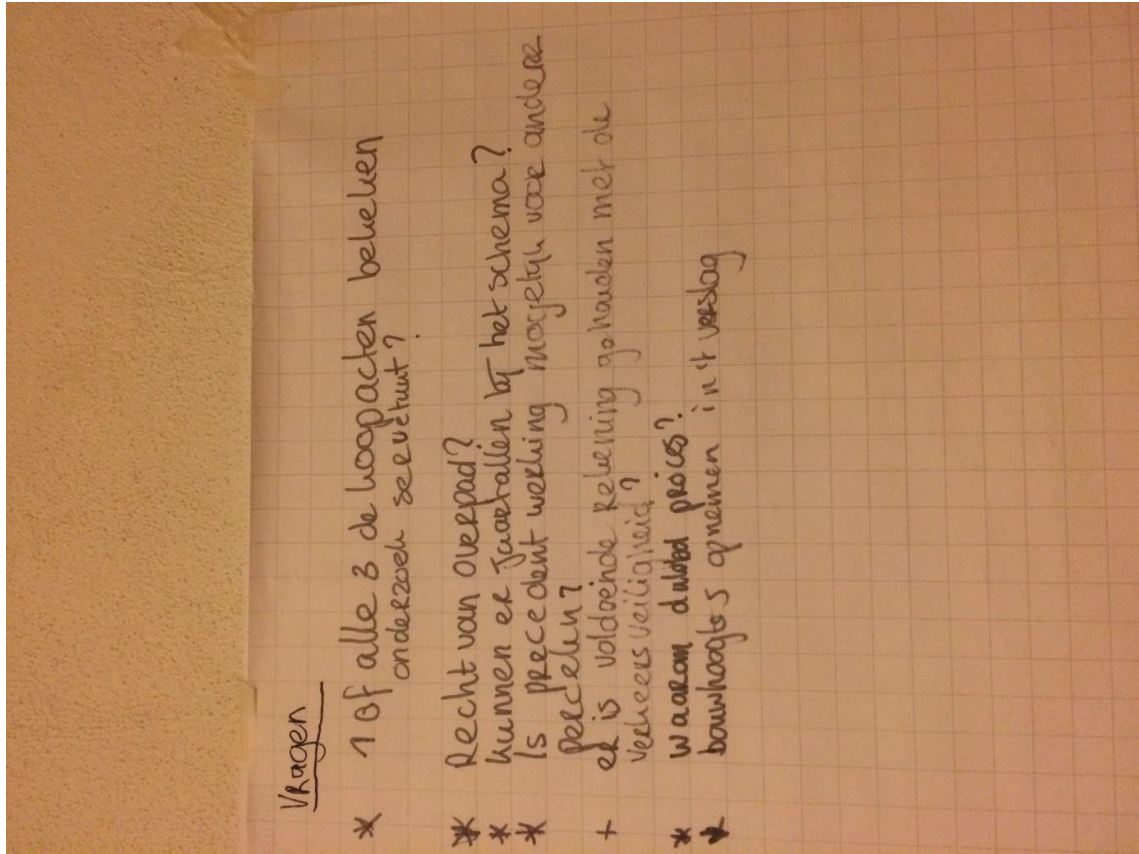 Vragen
* 1 of alle 3 de koopacten bekeken
onderzoek servituut?
* Recht van overpad?
* kunnen er Jaartallen bij het schema?
* Is precedent werking mogelijk voor andere
percelen?
+ er is voldoende Rekening gehouden met de
verkeersveiligheid?
* waarom dubbel proces?
* bouwhoogtes opnemen in 't verslag